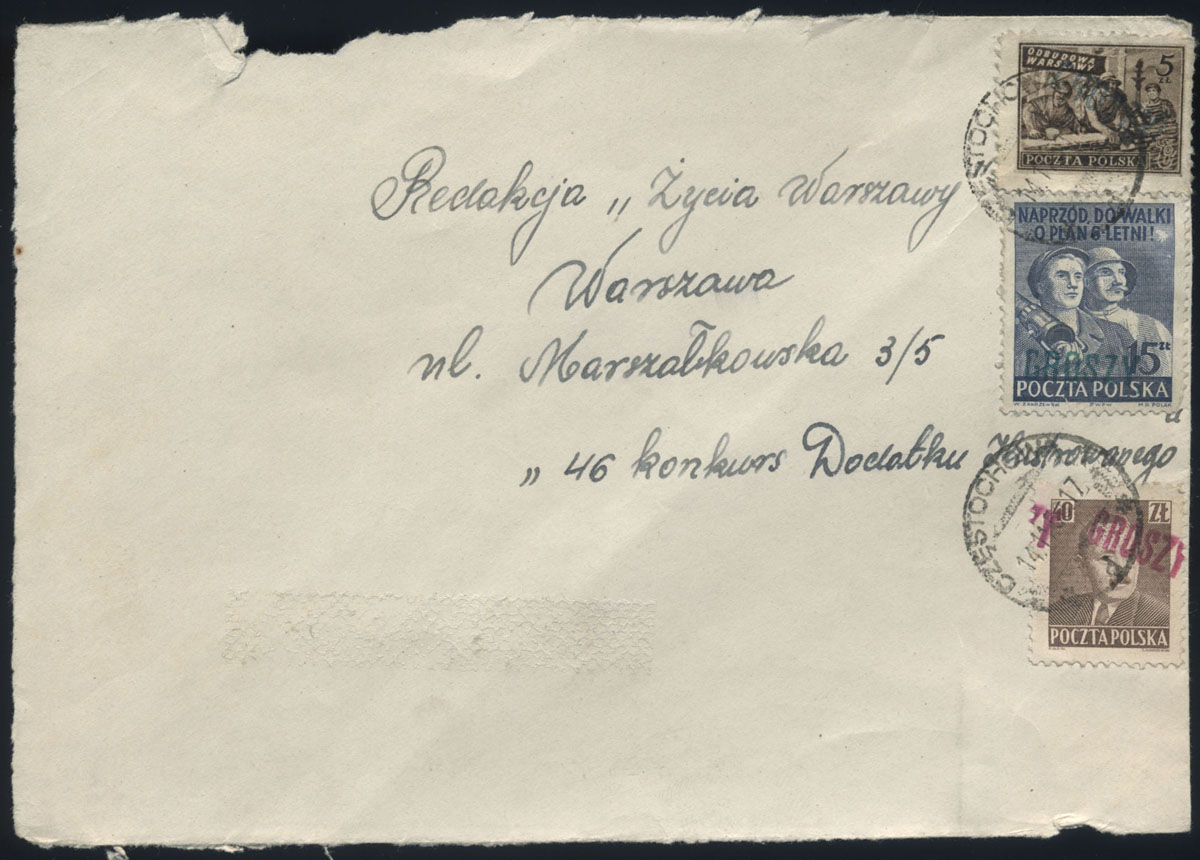 ODBUDOWA
WARSZAWY
5
ZŁ
POCZTA POLSKA
Redakcja „Życia Warszawy
NAPRZÓD, DO WALKI
O PLAN 6 LETNI!
Warszawa
GROSZY 15 ZŁ
POCZTA POLSKA
ul. Marszałkowska 3/5
„46 konkurs Dodatku Ilustrowanego"
CZĘSTOCHOWA
40 ZŁ
GROSZY
POCZTA POLSKA